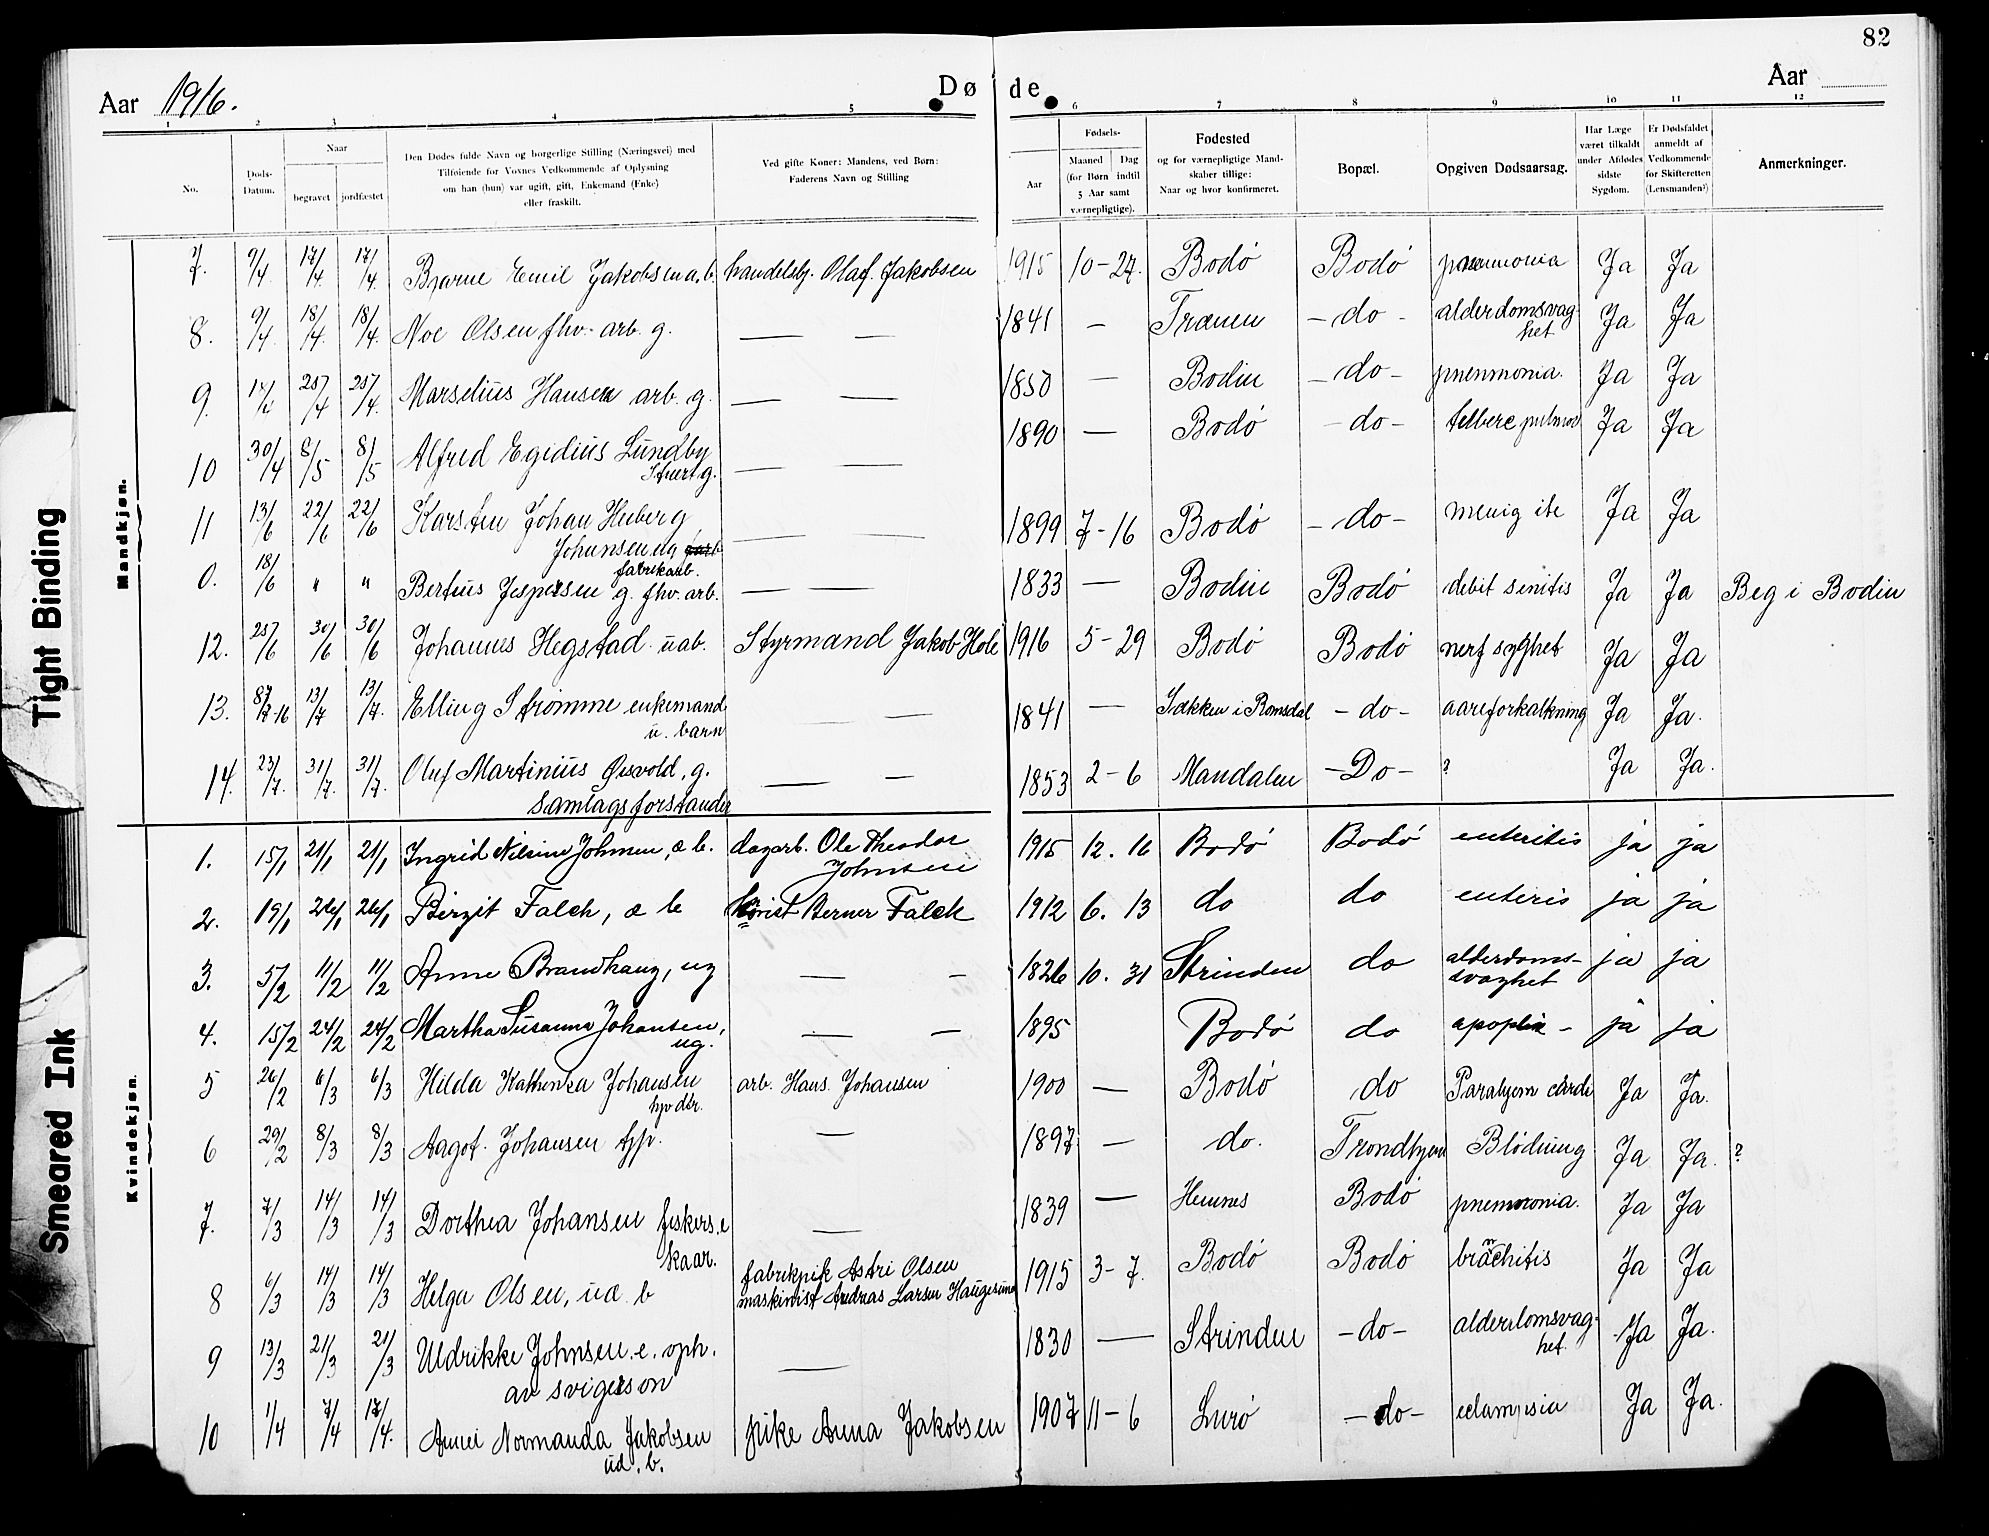 82
Aar 1916.
Døde
Aar
1 2 3 4 5 6 7 8 9 10 11 12
No.
Døds-Datum.
Naar
begravet
jordfæstet
Den Dødes fulde Navn og borgerlige Stilling (Næringsvei) med
Tilføiende for Voxnes Vedkommende af Oplysning
om han (hun) var ugift, gift, Enkemand (Enke)
eller fraskilt.
Ved gifte Koner: Mandens, ved Børn:
Faderens Navn og Stilling
Fødsels-
Aar
Maaned Dag
(for Børn indtil
5 Aar samt
værnepligtige).
Fødested
og for værnepligtige Mand-
skaber tillige:
Naar og hvor konfirmeret.
Bopæl.
Opgiven Dødsaarsag.
Har Læge
været tilkaldt
under Afdødes
sidste
Sygdom.
Er Dødsfaldet
anmeldt af
Vedkommende
for Skifteretten
(Lensmanden?)
Anmerkninger.
Mandkjøn.
7. 9/4 17/4 17/4. Bjarne Emil Jakobsen a. b. handelsbj. Olaf. Jakobsen 1915 10-27. Bodó Bodó pneumonia Ja Ja
8. 9/4 18/4. 18/4. Noe Olsen fhv. arb. g. — — 1841 — Trænen -do- alderdomsvag
het Ja Ja
9. 25/4 25/4. Marselius Hansen arb. g. — — 1850 — Bodin -do- pnenmonia. Ja Ja
10 30/4 8/5 8/5 Alfred Egidius Lundby
g. — — 1890 — Bodó -do- Ja Ja
11 13/6 22/6 22/6 Karsten Johan Heiberg
Johansen ug
fabrikarb. — — 1899 7-16 Bodó -do- menig ite Ja Ja
0. 18/6 " " Bertius Jespersen g. fhv. arb. — — 1833 — Bodin Bodó debit senilis Ja Ja Beg i Bodin
12. 25/6 30/6 30/6 Johannes Hegstad uab. Styrmand Jakob Hole 1916 5-29 Bodó Bodó nerfsyghet Ja Ja
13. 13/7 13/7. Elling Strømme enkemand
u. barn — — 1841 — Sækken i Romsdal -do- aareforkalkning Ja Ja.
14. 23/7. 31/7. 31/7. Oluf Martinius Øisvold, g.
Samlagsforstander — — 1853 2-6 Mandalen -Do- ? Ja Ja.
Kvindekjøn.
1. 15/1 21/1 21/1 Ingrid Nilsine Johnsen, æ b. dagarb. Ole Theodor
Johnsen 1915 12. 16 Bodó Bodó enteritis ja ja
2. 19/1 26/1 26/1 Birgit Falch, æ b Berner Falck 1912 6. 13 do do enteris ja ja
3. 5/2 11/2 11/2 Anne Brandhaug, ug — — 1826 10. 31 Strinden do alderdoms-
svaghet ja ja
4. 15/2 24/2 24/2 Martha Susanna Johansen,
ug. — — 1895 Bodó do apoplxi - ja ja
5 26/2 6/3 6/3 Hilda Kathinka Johansen
hjv dtr. arb. Hans. Johansen 1900 — Bodó do Paralysm cardi Ja Ja.
6 29/2 8/3 8/3 Aagot. Johansen tjp. — 1897 — do. Trondhjem Blödning Ja Ja. ?
7. 7/3 14/3 14/3 Dorthea Johansen fiskers. e
Skaar. — 1839 — Hemnes Bodó pnenmonia. Ja Ja
8 6/3 14/3 14/3 Helga Olsen, ud. b fabrikpik Astri Olsen
maskinist Andreas Larsen Haugesund 1915 3-7. Bodó Bodó bronchitis Ja Ja
9 13/3 21/3 21/3 Uldrikke Johnsen. e. oph.
av svigerson — 1830 — Strinden -do- alderdomsvag-
het. Ja Ja.
10 1/4 7/4 17/4. Normanda Jakobsen
ud. b. pike Anna Jakobsen 1907 11-6 Lurø -do- eclampsia Ja Ja.
Tight Binding
Smeared Ink